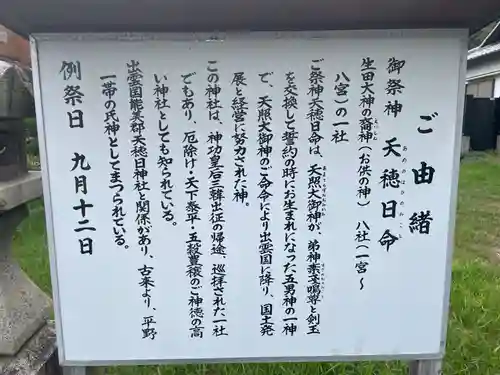 ご由緒
御祭神 天穂日命
あめのほひのみこと
生田大神の裔神（お供の神） 八社（一宮～
八宮）の一社
ご祭神天穂日命は、天照大御神が、弟神素戔嗚尊と剣玉
を交換して誓約の時にお生まれになった五男神の一神
で、天照大御神のご命令により出雲国に降り、国土発
展と経営に努力された神。
この神社は、神功皇后三韓出征の帰途、巡拝された一社
でもあり、厄除け・天下泰平・五穀豊穣のご神徳の高
い神社としても知られている。
出雲国能美郡天穂日神社と関係があり、古来より、平野
一帯の氏神としてまつられている。
例祭日 九月十二日